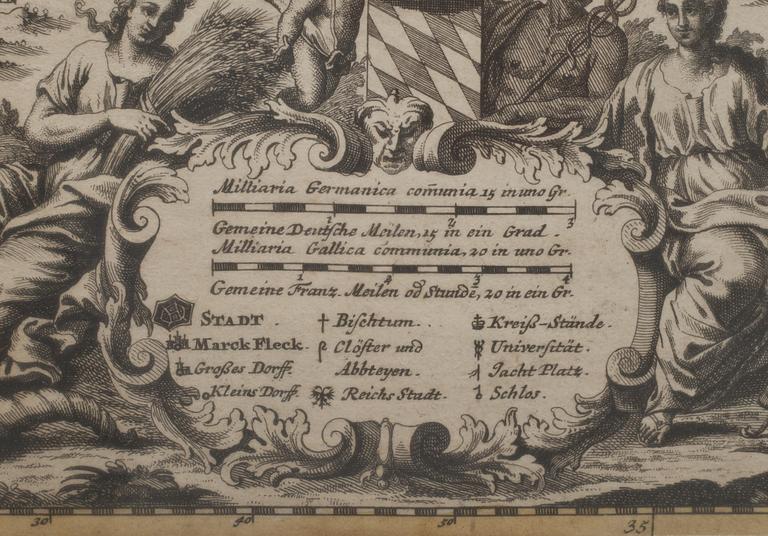 Milliaria Germanica com̄unia 15 in uno Gr.
1 2 3
Gemeine Deutsche Meilen, 15 in ein Grad.
Milliaria Gallica communia, 20 in uno Gr.
1 2 3 4
Gemeine Franz. Meilen od Stundē, 20 in ein Gr.
STADT. Bischtum. Kreiß-Stände.
Marck Fleck. Clöster und Universität.
Großes Dorff. Abbteyen. Jacht Platz.
Kleins Dorff. Reichs Stadt. Schlos.
30 40 50 35